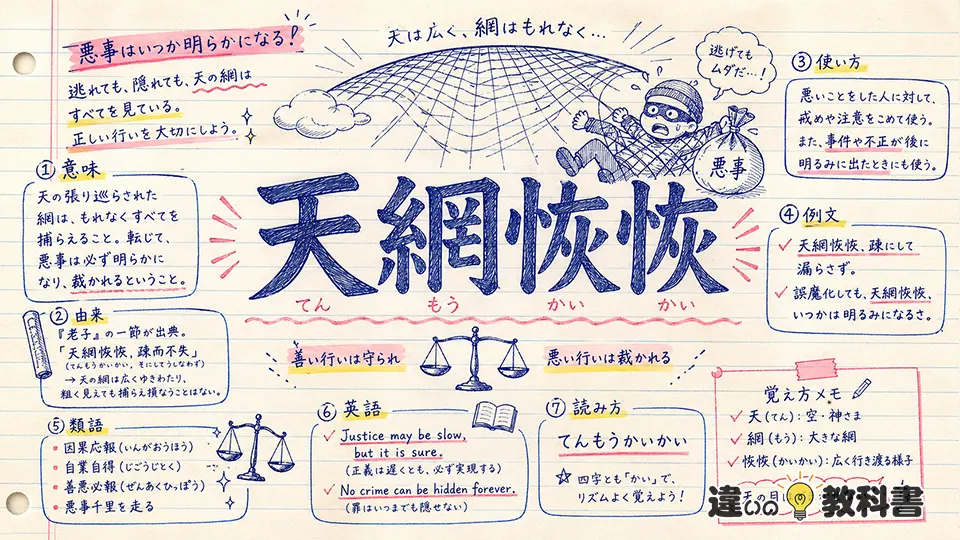 悪事はいつか明らかになる！
逃れても、隠れても、天の網は
すべてを見ている。
正しい行いを大切にしよう。
天は広く、網はもれなく…
逃げても
ムダだ…！
悪事
天網恢恢
てん もう かい かい
善い行いは守られ
悪い行いは裁かれる
① 意味
天の張り巡らされた
網は、もれなくすべてを
捕らえること。転じて、
悪事は必ず明らかに
なり、裁かれるということ。
② 由来
『老子』の一節が出典。
「天網恢恢、疎而不失」
(てんもうかいかい、そにしてうしなわず)
→ 天の網は広くゆきわたり、
粗く見えても捕らえ損なうことはない。
③ 使い方
悪いことをした人に対して、
戒めや注意をこめて使う。
また、事件や不正が後に
明るみに出たときにも使う。
④ 例文
天網恢恢、疎にして
漏らさず。
誤魔化しても、天網恢恢、
いつかは明るみになるさ。
⑤ 類語
因果応報(いんがおうほう)
自業自得(じごうじとく)
善悪必報(ぜんあくひっぽう)
悪事千里を走る
⑥ 英語
Justice may be slow,
but it is sure.
(正義は遅くとも、必ず実現する)
No crime can be hidden forever.
(罪はいつまでも隠せない)
⑦ 読み方
てんもうかいかい
四字とも「かい」で、
リズムよく覚えよう！
覚え方メモ
天(てん)：空・神さま
網(もう)：大きな網
恢恢(かいかい)：広く行き渡る様子
天の目
違いの教科書